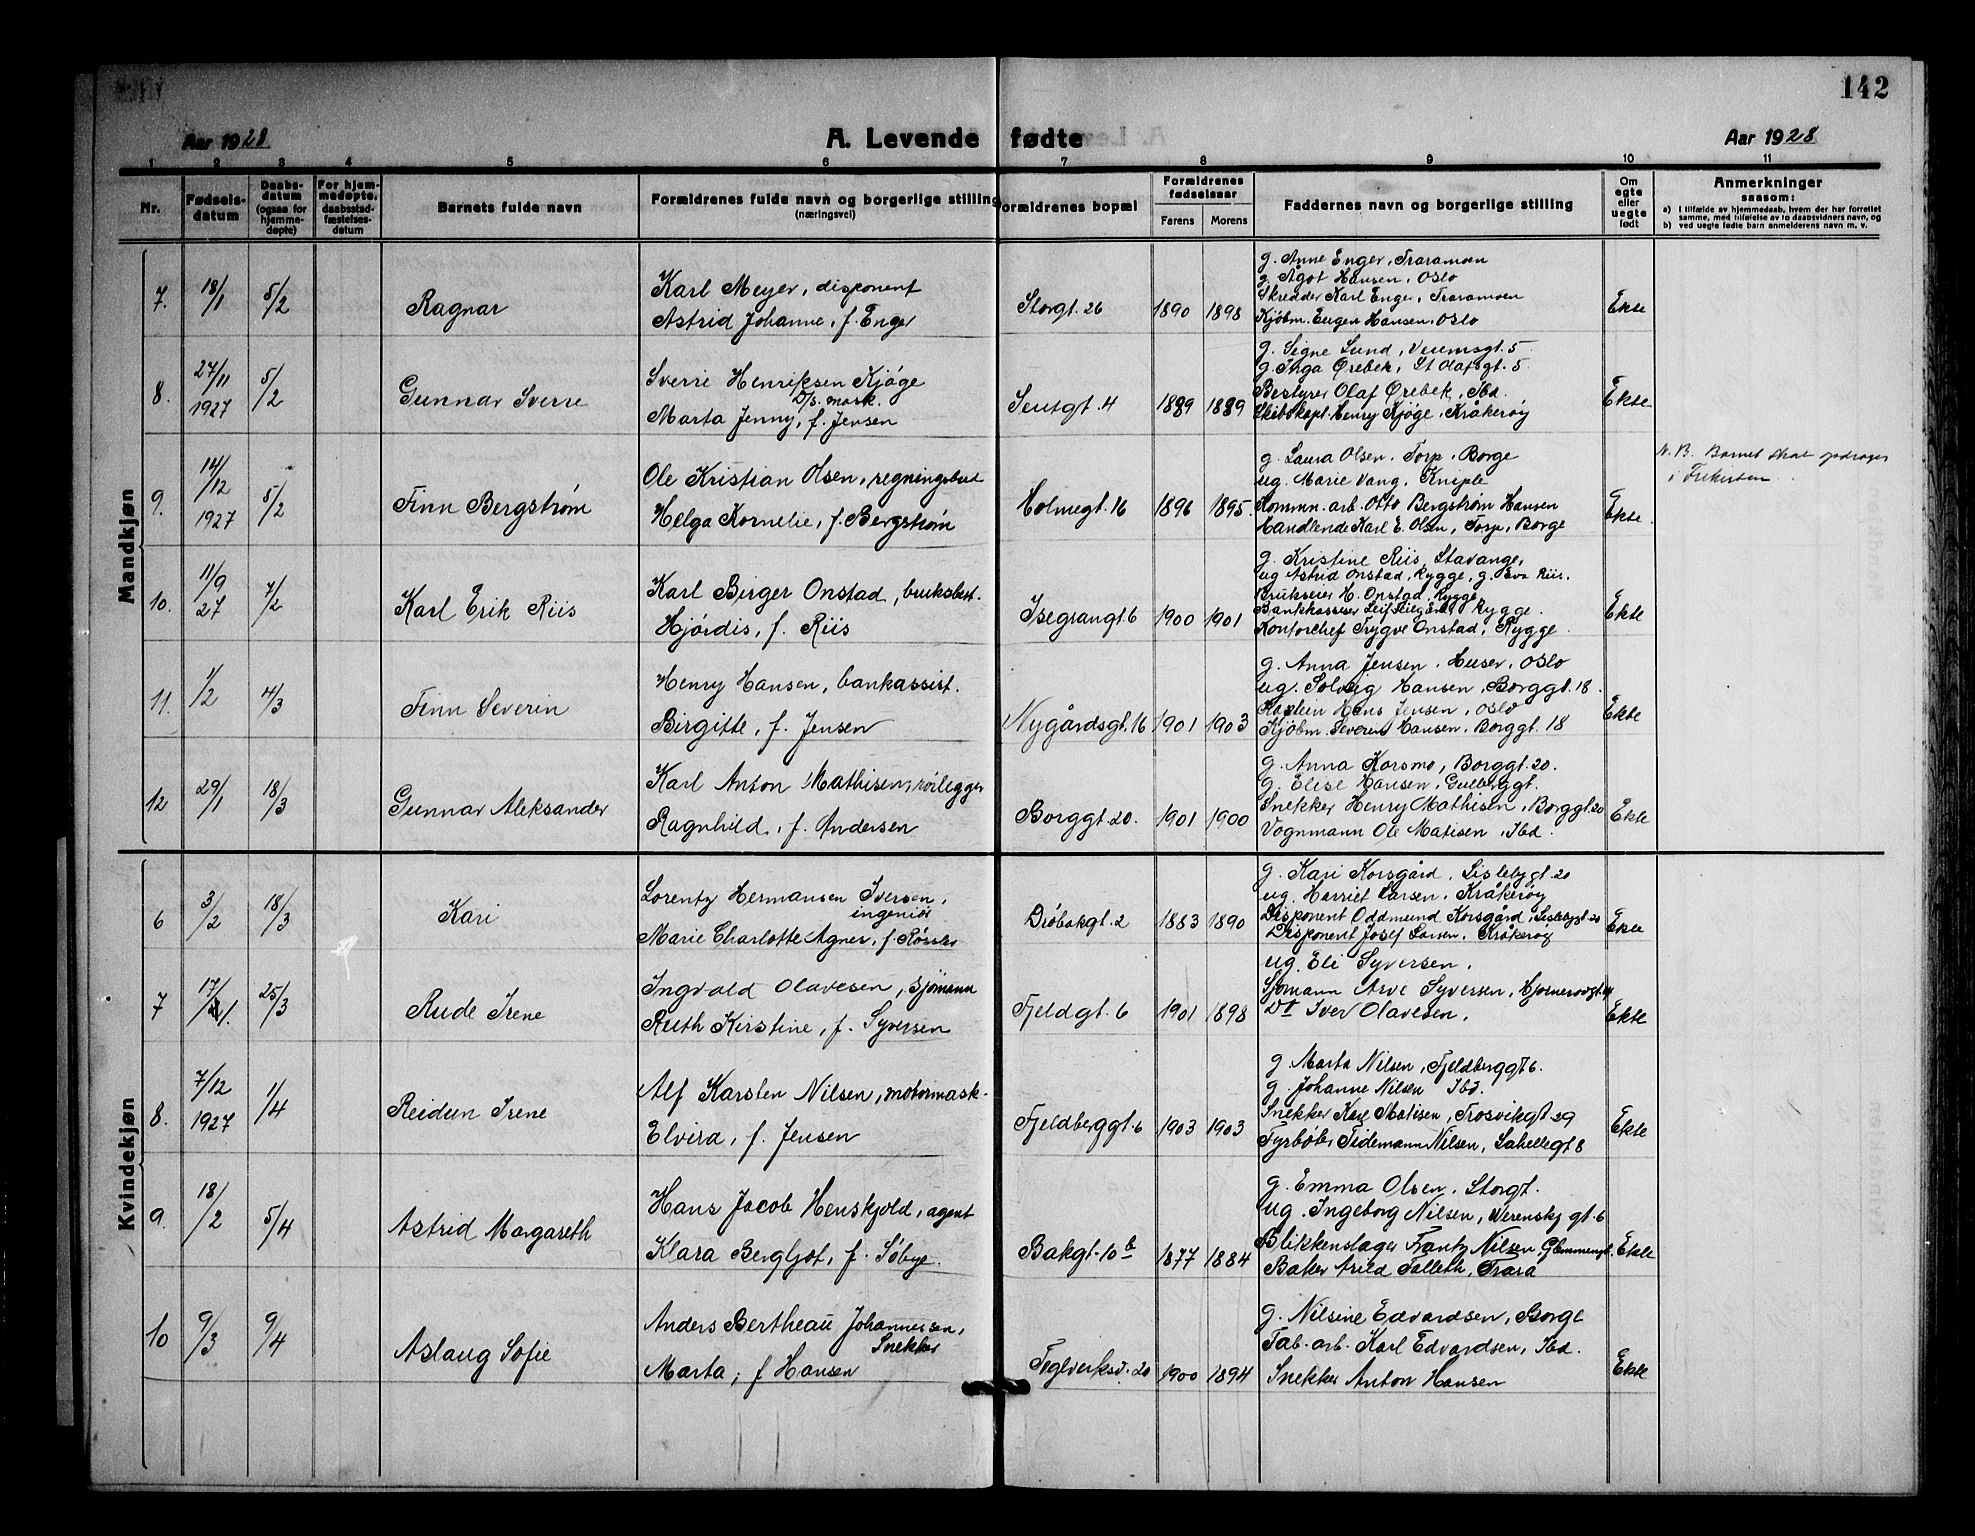 142
Aar 1928
A. Levende fødte
Aar 1928
1 2 3 4 5 6 7 8 9 10 11
Nr.
Fødsels-
datum
Daabs-
datum
(ogsaa for
hjemme-
døpte)
For hjem-
medøpte,
daabsstad-
fæstelses-
datum
Barnets fulde navn
Forældrenes fulde navn og borgerlige stilling
(næringsvei)
Forældrenes bopæl
Forældrenes
fødselsaar
Farens Morens
Faddernes navn og borgerlige stilling
Om
egte
eller
uegte
født
Anmerkninger
saasom:
a) i tilfælde av hjemmedaab, hvem der har forrettet
samme, med tilføielse av to daabsvidners navn, og
b) ved uegte fødte barn anmelderens navn m. v.
Mandkjøn
7. 18/1 5/2 Ragnar
Karl Meyer, disponent
Astrid Johanne, f. Enger
Storgt. 26 1890 1898
g. Anne Enger, Traramoen
g. Ågot Hansen, Oslo
Skredder Karl Enger, Traramoen
Kjøbm. Eugen Hansen, Oslo
Ekte
8. 27/11 1927 5/2 Gunnar Sverre
Sverre Henriksen Kjøge
D/S. mask.
Marta Jenny, f. Jensen
4 1889 1889
g. Signe Lund, Veumsgt. 5
g. Inga Ørebek, St Olafsgt. 5
Bestyrer Olaf Ørebek, Ibd.
Skibskapt. Henry Kjøge, Kråkerøy
Ekte
9. 14/12 1927 5/2 Finn Bergstrøm
Ole Kristian Olsen, regningsbud
Helga Kornelie, f. Bergstrøm
Holmegt. 16 1896 1895.
g. Laura Olsen, Torp, Borge
ug. Marie Vang, Kniple
Kommn. arb. Otto Bergstrøm Hansen
Handlende Karl E. Olsen, Torp, Borge
Ekte
N. B. Barnet skal opdrages
i Frikirken
10. 11/9 27 7/2 Karl Erik Riis
Karl Birger Onstad, bruksbest.
Hjørdis, f. Riis
Isegrangt. 6 1900 1901
g. Kristine Riis, Stavange,
ug Astrid Onstad, Rygge, g. Eva Riis.
Brukseier H. Onstad, Rygge
Bankkasserer Leif Rygge.
Kontorchef Trygve Onstad, Rygge
Ekte
11. 1/2 4/3 Finn Severin
Henry Hansen, bankassist.
Birgitte, f. Jensen
Nygårdsgt. 16 1901 1903
g. Anna Jensen, Huser, Oslo
ug. Solveig Hansen, Borggt. 18.
Kaptein Hans Jensen, Oslo
Kjøbm. Severin Hansen, Borggt. 18
Ekte
12 29/1 18/3 Gunnar Aleksander
Karl Anton Mathisen, rørlegger
Ragnhild, f. Andersen
Borggt. 20. 1901 1900
g. Anna Korsmo, Borggt. 20.
g. Elise Hansen, Gulberggt.
Snekker Henry Mathisen, Borggt. 20
Vognmann Ole Matisen, Ibd.
Ekte
Kvindekjøn
6 3/2 18/3 Kari
Lorentz Hermansen Iversen,
ingeniør
Marie Charlotte Agnes, f. Røssler
Drøbakgt. 2 1883 1890
g. Kari Korsgård, Lislebygt 20
ug. Harriet Larsen, Kråkerøy
Disponent Oddmund Korsgård, Lislebygt 20
Disponent Josef Larsen, Kråkerøy
Ekte
7 17/1. 25/3 Rude Irene
Ingvald Olavesen, sjømann
Ruth Kirstine, f. Syversen
Fjeldgt. 6 1901 1898
ug. Eli Syversen,
Sjømann Arve Syversen,
Do Iver Olavesen,
Ekte
8. 7/12 1927 1/4 Reidun Irene
Alf Karsten Nilsen, motormask.
Elvira, f. Jensen
Fjeldberggt. 6 1903 1903
g. Marta Nilsen, Fjeldberggt 6.
g. Johanne Nilsen Ibd.
Snekker Karl Matisen, Trosvikgt 29
Fyrbøter Tidemann Nilsen, Lahellegt 8
Ekte
9. 18/2 5/4 Astrid Margareth
Hans Jacob Henskjold, agent
Klara Bergljot, f. Søbye.
Bakgt. 10 b 1877 1884
g. Emma Olsen, Storgt.
ug. Ingeborg Nilsen, Werenskj gt. 6
Blikkenslager Frantz Nilsen, Glemmengt.
Baker Arild Talleth, Trara
Ekte
10 9/3 9/4 Aslaug Sofie
Anders Bertheau Johannesen,
Snekker
Marta, f Hansen
Teglverksv. 20 1900 1894
g. Nilsine Edvardsen, Borge
Fab. arb. Karl Edvardsen, Ibd.
Snekker Anton Hansen
Ekte